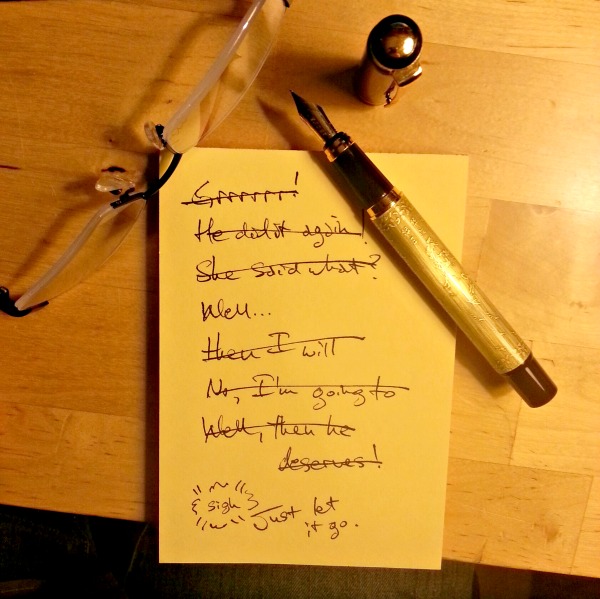 Grrrrrr!
He did it again!
She said what?
Well...
then I will
No, I'm going to
Well, then he
deserves!
sigh Just let
it go.